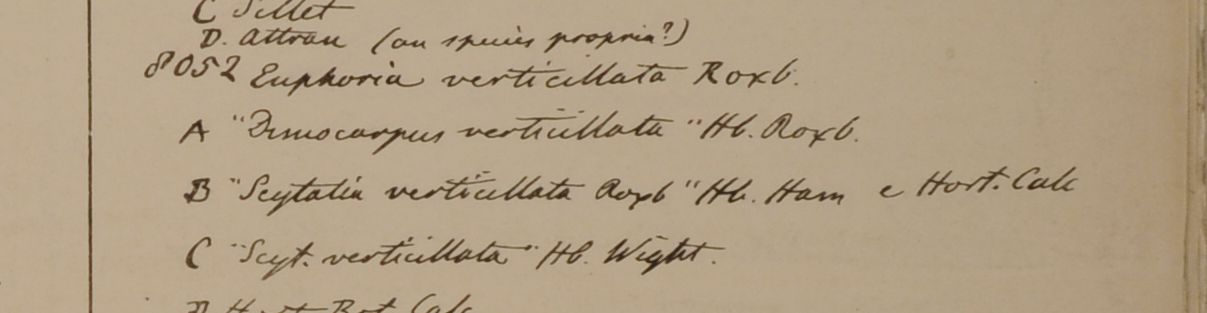 C Sillet
D. Attran (an species propria?)
8052 Euphoria verticillata Roxb.
A "Dimocarpus verticillata" Hb. Roxb.
B "Scytalia verticillata Roxb" Hb. Ham e Hort. Calc
C "Scyt. verticillata" Hb. Wight.
D Hort Bot Calc